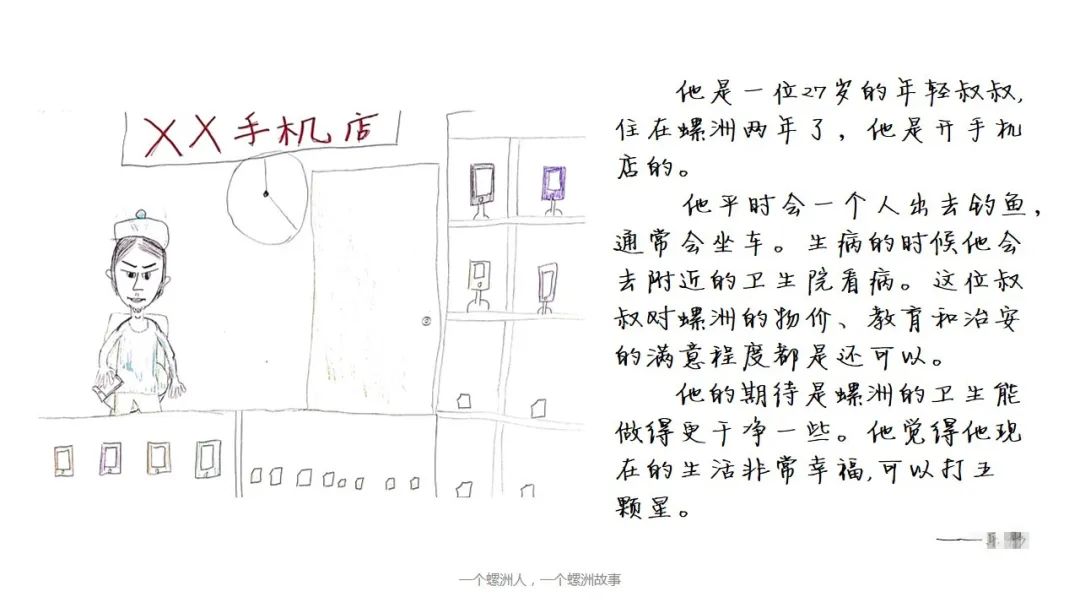 XX手机店
他是一位27岁的年轻叔叔,
住在螺洲两年了，他是开手机
店的。
他平时会一个人出去钓鱼，
通常会坐车。生病的时候他会
去附近的卫生院看病。这位叔
叔对螺洲的物价、教育和治安
的满意程度都是还可以。
他的期待是螺洲的卫生能
做得更干净一些。他觉得他现
在的生活非常幸福,可以打五
颗星。
一个螺洲人，一个螺洲故事